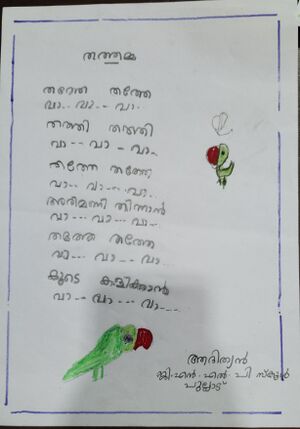 തത്തമ്മ
തത്തേ തത്തേ
വാ... വാ... വാ...
തത്തി തത്തി
വാ... വാ... വാ...
തത്തേ തത്തേ
വാ... വാ... വാ...
അരിമണി തിന്നാൻ
വാ... വാ... വാ...
തത്തേ തത്തേ
വാ... വാ... വാ...
കൂടെ കളിക്കാൻ
വാ... വാ... വാ...
ആദിത്യൻ
ജി.എൻ.എൽ.പി സ്കൂൾ